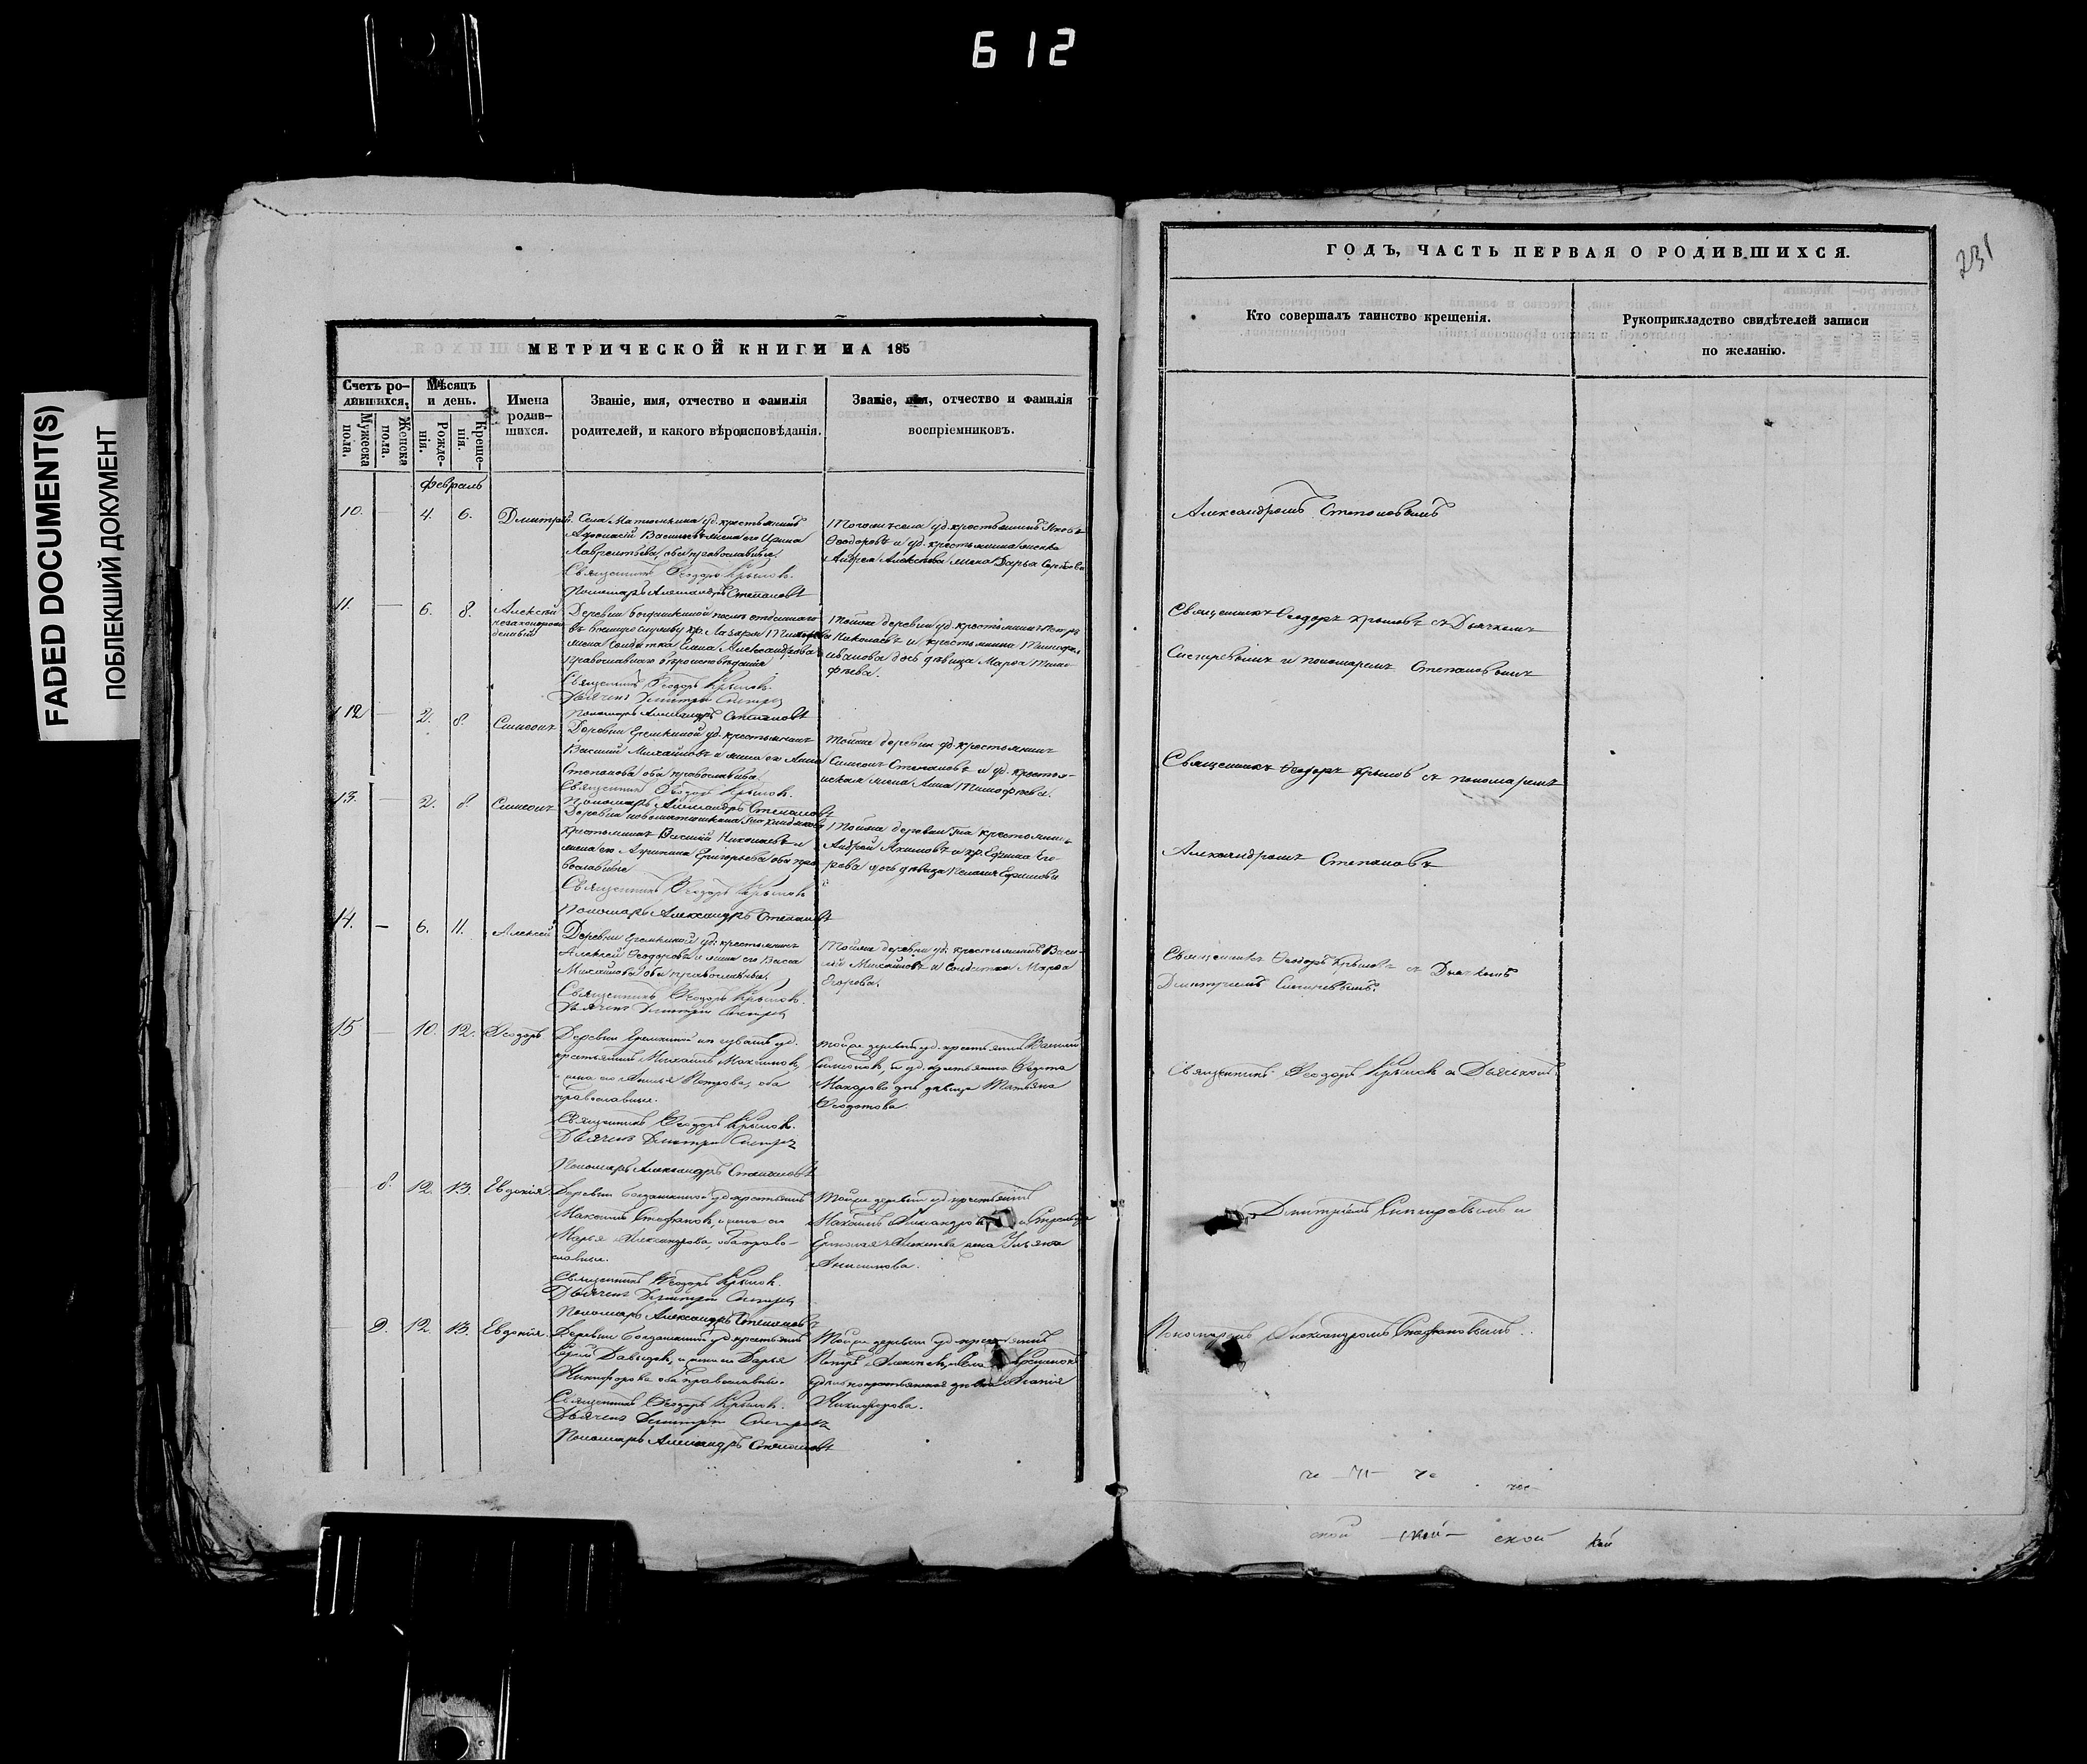 612
FADED DOCUMENT(S)
ПОБЛЕКШИЙ ДОКУМЕНТ
МЕТРИЧЕСКОЙ КНИГИ НА 185
Счетъ ро-
дившихся.
Мѣсяцъ
и день.
Мужеска
пола.
Женска
пола.
Рожде-
нія.
Креще-
нія.
Имена
родив-
шихся.
Званіе, имя, отчество и фамилія
родителей, и какого вѣроисповѣданія.
Званіе, имя, отчество и фамилія
воспріемниковъ.
Февраль
10. — 4. 6. Дмитрій.
Села Матюшкина уд. крестьянинъ
Афонасій Васильевъ жена его Ирина
Лаврентьева, оба православные.
Священникъ Ѳеодоръ Крыловъ.
Пономарь Александръ Степановъ
Тогоже села уд. крестьянинъ Яковъ
Ѳеодоровъ и уд. крестьянина
Андрея Алексѣева жена Дарья Сергѣева
11. — 6. 8. Алексѣй
незаконорож
денный
Деревни Богдашкиной
въ военную службу кр. Лазаря Тимофѣева
жена солдатка Елена Александрова
православнаго вѣроисповѣданія
Священникъ Ѳеодоръ Крыловъ.
Дьячекъ Дмитрій
Пономарь Александръ Степановъ
Тойже деревни уд. крестьянинъ Петръ
Николаевъ и крестьянина Тимофея
Иванова дочь дѣвица Марѳа Тимо-
фѣева.
12 — 2. 8. Симеонъ
Деревни Еремкиной уд. крестьянинъ
Василій Михайловъ и жена его Анна
Степанова оба православные.
Священникъ Ѳеодоръ Крыловъ.
Пономарь Александръ Степановъ
Тойже деревни уд. крестьянинъ
Симеонъ Степановъ и уд. крестья-
нская жена Анна Тимофѣева.
13. — 2. 8. Симеонъ
Деревни
крестьянинъ Василій Николаевъ и
жена его Агрипина Григорьева оба пра
вославные
Священникъ Ѳеодоръ Крыловъ
Пономарь Александръ Степановъ
Тойже деревни крестьянинъ
Андрей Якимовъ и кр. Ефима Его-
рова дочь дѣвица Пелагия Ефимова
14. — 6. 11. Алексѣй
Деревни Еремкиной уд. крестьянинъ
Алексѣй Ѳеодоровъ и жена его Васса
Михайлова оба православные.
Священникъ Ѳеодоръ Крыловъ.
Дьячекъ Дмитрій
Тойже деревни уд. крестьянинъ Васи-
лій Михайловъ и солдатка Марѳа
Егорова.
15 — 10. 12. Ѳеодоръ
Деревни Еремкиной из чувашъ уд.
крестьянинъ Михаилъ Максимовъ,
и жена его Анисья Петрова, оба
православные.
Священникъ Ѳеодоръ Крыловъ.
Дьячекъ Дмитрій
Пономарь Александръ Степановъ
тойже деревни уд. крестьянинъ Василій
Симоновъ, и уд. крестьянина Ѳедота
Макарова дочь дѣвица Татьяна
Ѳеодотова.
8. 12. 13. Евдокія.
Деревни Богдашкиной уд. крестьянинъ
Максимъ Стефановъ, и жена его
Марья Александрова, оба право-
славные.
Священникъ Ѳеодоръ Крыловъ.
Дьячекъ Дмитрій
Пономарь Александръ Степановъ
Тойже деревни уд. крестьянинъ
Ермолая Алексѣева жена Ульяна
Анисимова.
9. 12. 13. Евдокія.
Деревни Богдашкиной уд. крестьянинъ
Сергѣй Давыдовъ, и жена его Дарья
Никифорова оба православные.
Священникъ Ѳеодоръ Крыловъ.
Дьячекъ Дмитрій
Пономарь Александръ Степановъ
Тойже деревни уд. крестьянинъ
Петръ
Никифорова.
ГОДЪ, ЧАСТЬ ПЕРВАЯ О РОДИВШИХСЯ.
231
Кто совершалъ таинство крещенія.
Рукоприкладство свидѣтелей записи
по желанію.
Александромъ Степановымъ
Священникъ Ѳеодоръ Крыловъ съ Дьячкомъ
Снегиревымъ и пономаремъ Степановымъ
Священникъ Ѳеодоръ Крыловъ съ пономаремъ
Александромъ Степановъ
Священникъ Ѳеодоръ Крыловъ съ Дьячкомъ
Дмитріемъ Снегиревымъ.
Священникъ Ѳеодоръ Крыловъ съ Дьячкомъ
Дмитріемъ Снигиревымъ и
Пономаремъ Александромъ Стефановымъ.
ской ской ской кой